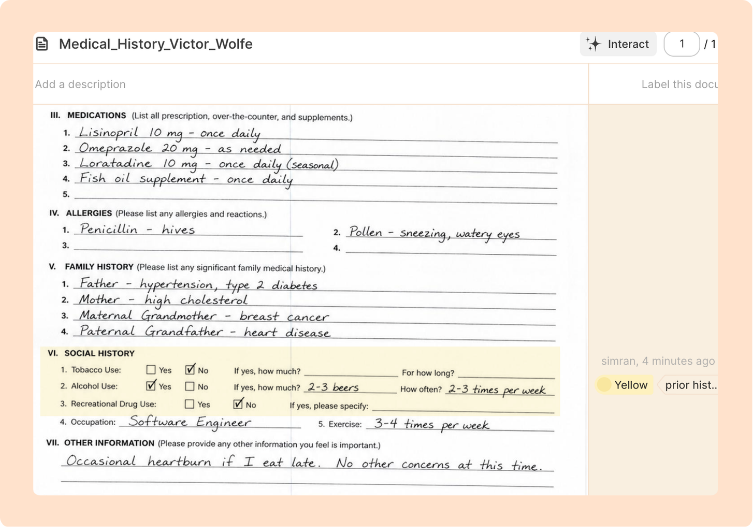 Medical_History_Victor_Wolfe Interact 1 / 1
Add a description Label this docu
III. MEDICATIONS (List all prescription, over-the-counter, and supplements.)
1. Lisinopril 10 mg - once daily
2. Omeprazole 20 mg - as needed
3. Loratadine 10 mg - once daily (seasonal)
4. Fish oil supplement - once daily
5.
IV. ALLERGIES (Please list any allergies and reactions.)
1. Penicillin - hives 2. Pollen - sneezing, watery eyes
3. 4.
V. FAMILY HISTORY (Please list any significant family medical history.)
1. Father - hypertension, type 2 diabetes
2. Mother - high cholesterol
3. Maternal Grandmother - breast cancer
4. Paternal Grandfather - heart disease
VI. SOCIAL HISTORY
simran, 4 minutes ago
1. Tobacco Use: Yes No If yes, how much? For how long?
2. Alcohol Use: Yes No If yes, how much? 2-3 beers How often? 2-3 times per week
Yellow prior hist...
3. Recreational Drug Use: Yes No If yes, please specify:
4. Occupation: Software Engineer 5. Exercise: 3-4 times per week
VII. OTHER INFORMATION (Please provide any other information you feel is important.)
Occasional heartburn if I eat late. No other concerns at this time.